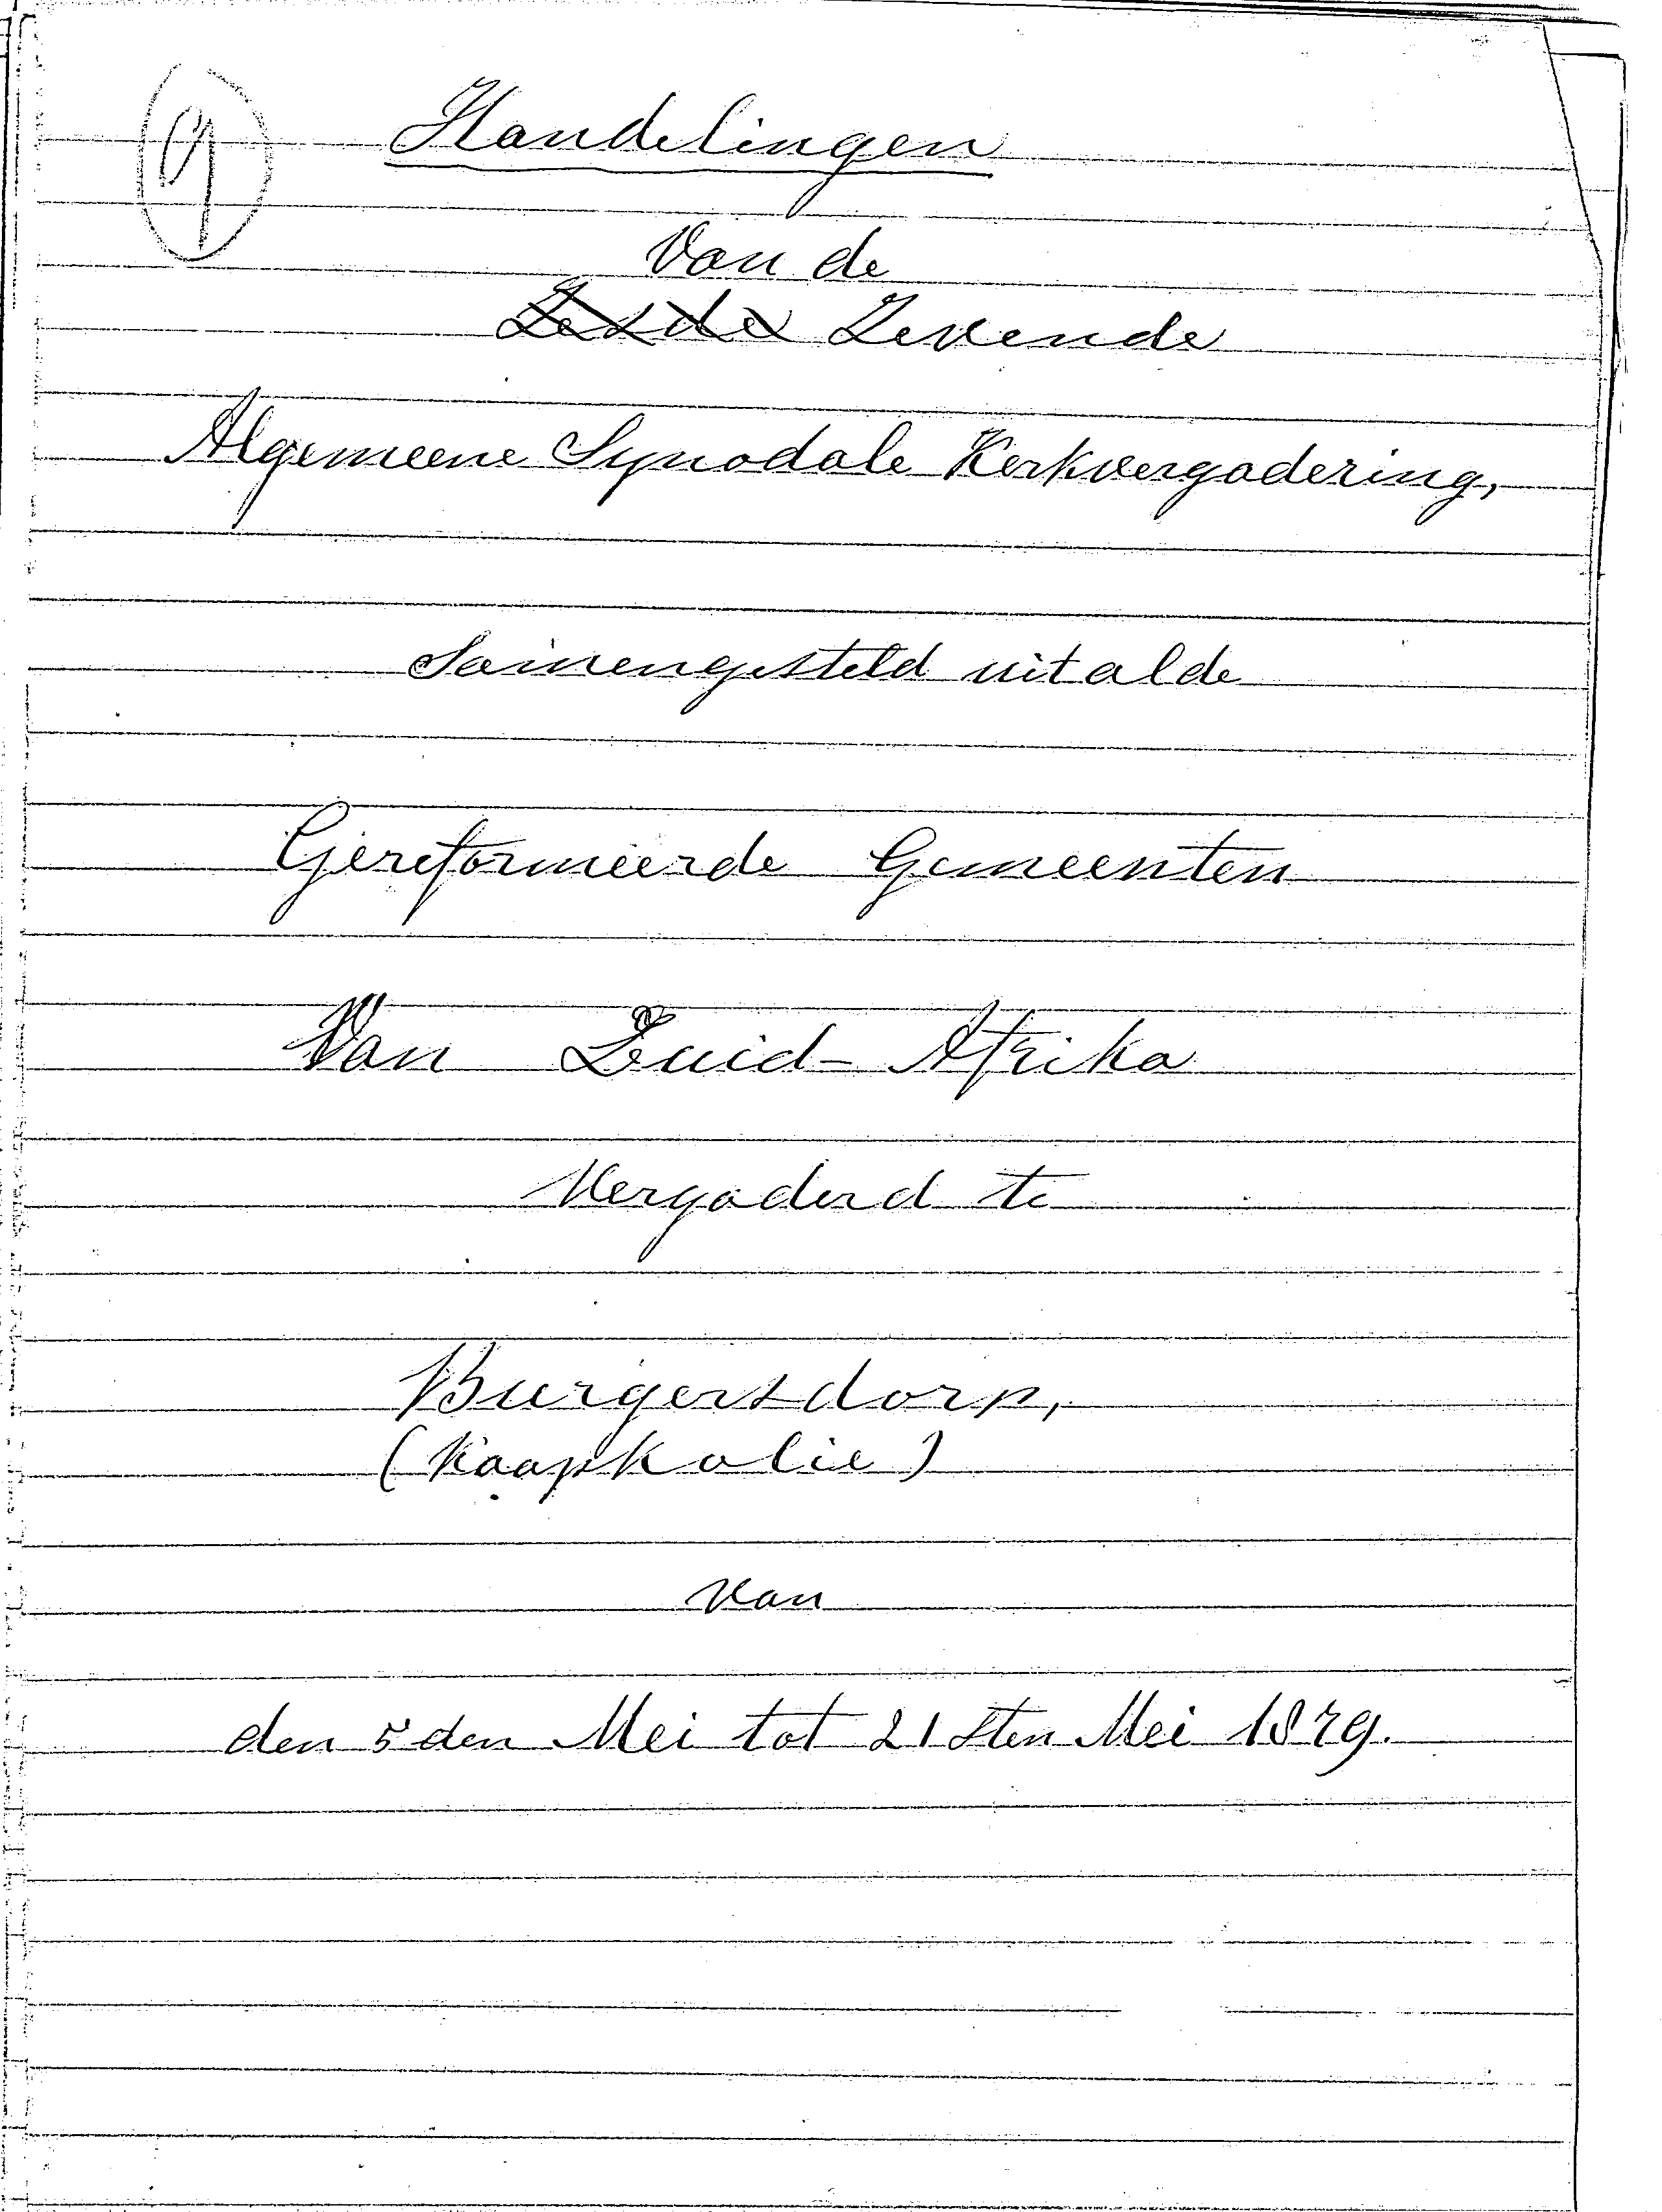 9
Handelingen
Van de
Zesde Zevende
Algemeene Synodale Kerkvergadering,
Samengesteld uit al de
Gereformeerde Gemeenten
Van Zuid-Afrika
Vergaderd te
Burgersdorp,
(Kaapkolie)
van
den 5 den Mei tot 21 sten Mei 1879.